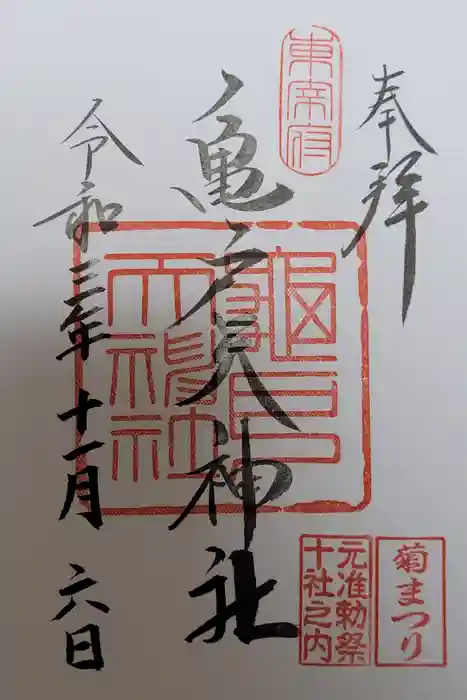 奉拝
東宰府
亀戸天神社
亀戸天神社
令和三年十一月六日
元准勅祭
十社之内
菊まつり